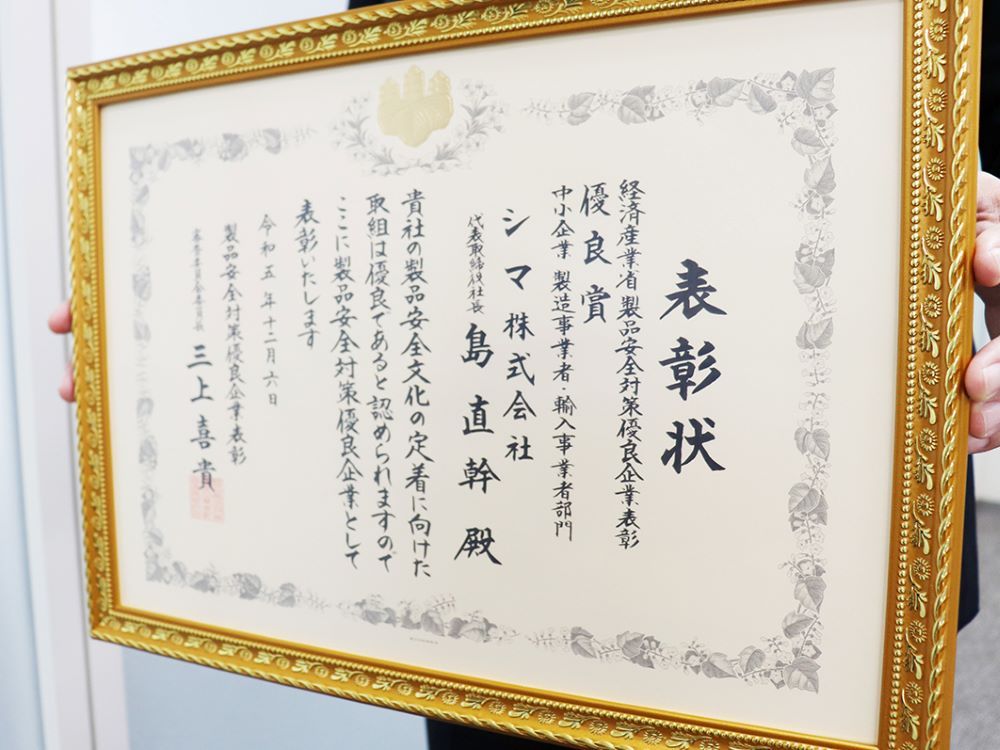 表彰状
経済産業省 製品安全対策優良企業表彰
優良賞
中小企業 製造事業者・輸入事業者部門
シマ株式会社
代表取締役社長 島直幹殿
貴社の製品安全文化の定着に向けた
取組は優良であると認められますので
ここに製品安全対策優良企業として
表彰いたします
令和五年十二月六日
製品安全対策優良企業表彰
審査委員会委員長 三上喜貴